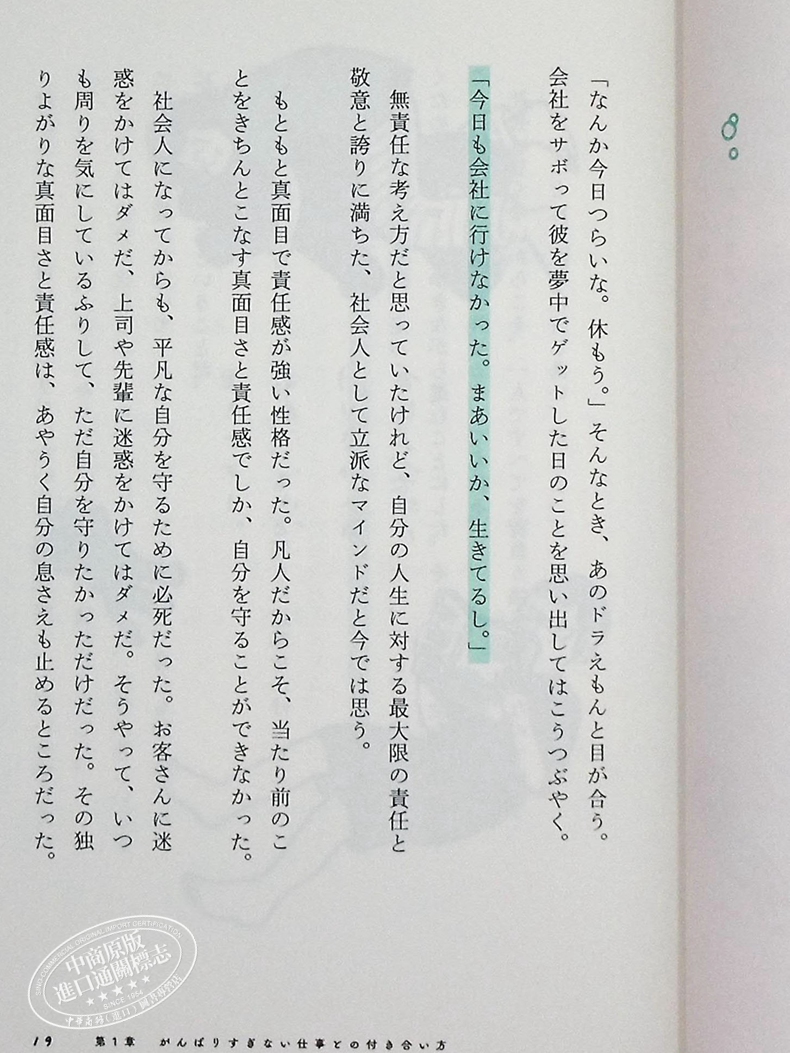 「なんか今日つらいな。休もう。」そんなとき、あのドラえもんと目が合う。
会社をサボって彼を夢中でゲットした日のことを思い出してはこうつぶやく。
「今日も会社に行けなかった。まあいいか、生きてるし。」
無責任な考え方だと思っていたけれど、自分の人生に対する最大限の責任と
敬意と誇りに満ちた、社会人として立派なマインドだと今では思う。
もともと真面目で責任感が強い性格だった。凡人だからこそ、当たり前のこ
とをきちんとこなす真面目さと責任感でしか、自分を守ることができなかった。
社会人になってからも、平凡な自分を守るために必死だった。お客さんに迷
惑をかけてはダメだ、上司や先輩に迷惑をかけてはダメだ。そうやって、いつ
も周りを気にしているふりして、ただ自分を守りたかっただけだった。その独
りよがりな真面目さと責任感は、あやうく自分の息さえも止めるところだった。
19 第1章 がんばりすぎない仕事との付き合い方
中商原版
進口通關標志
SINCE 1954